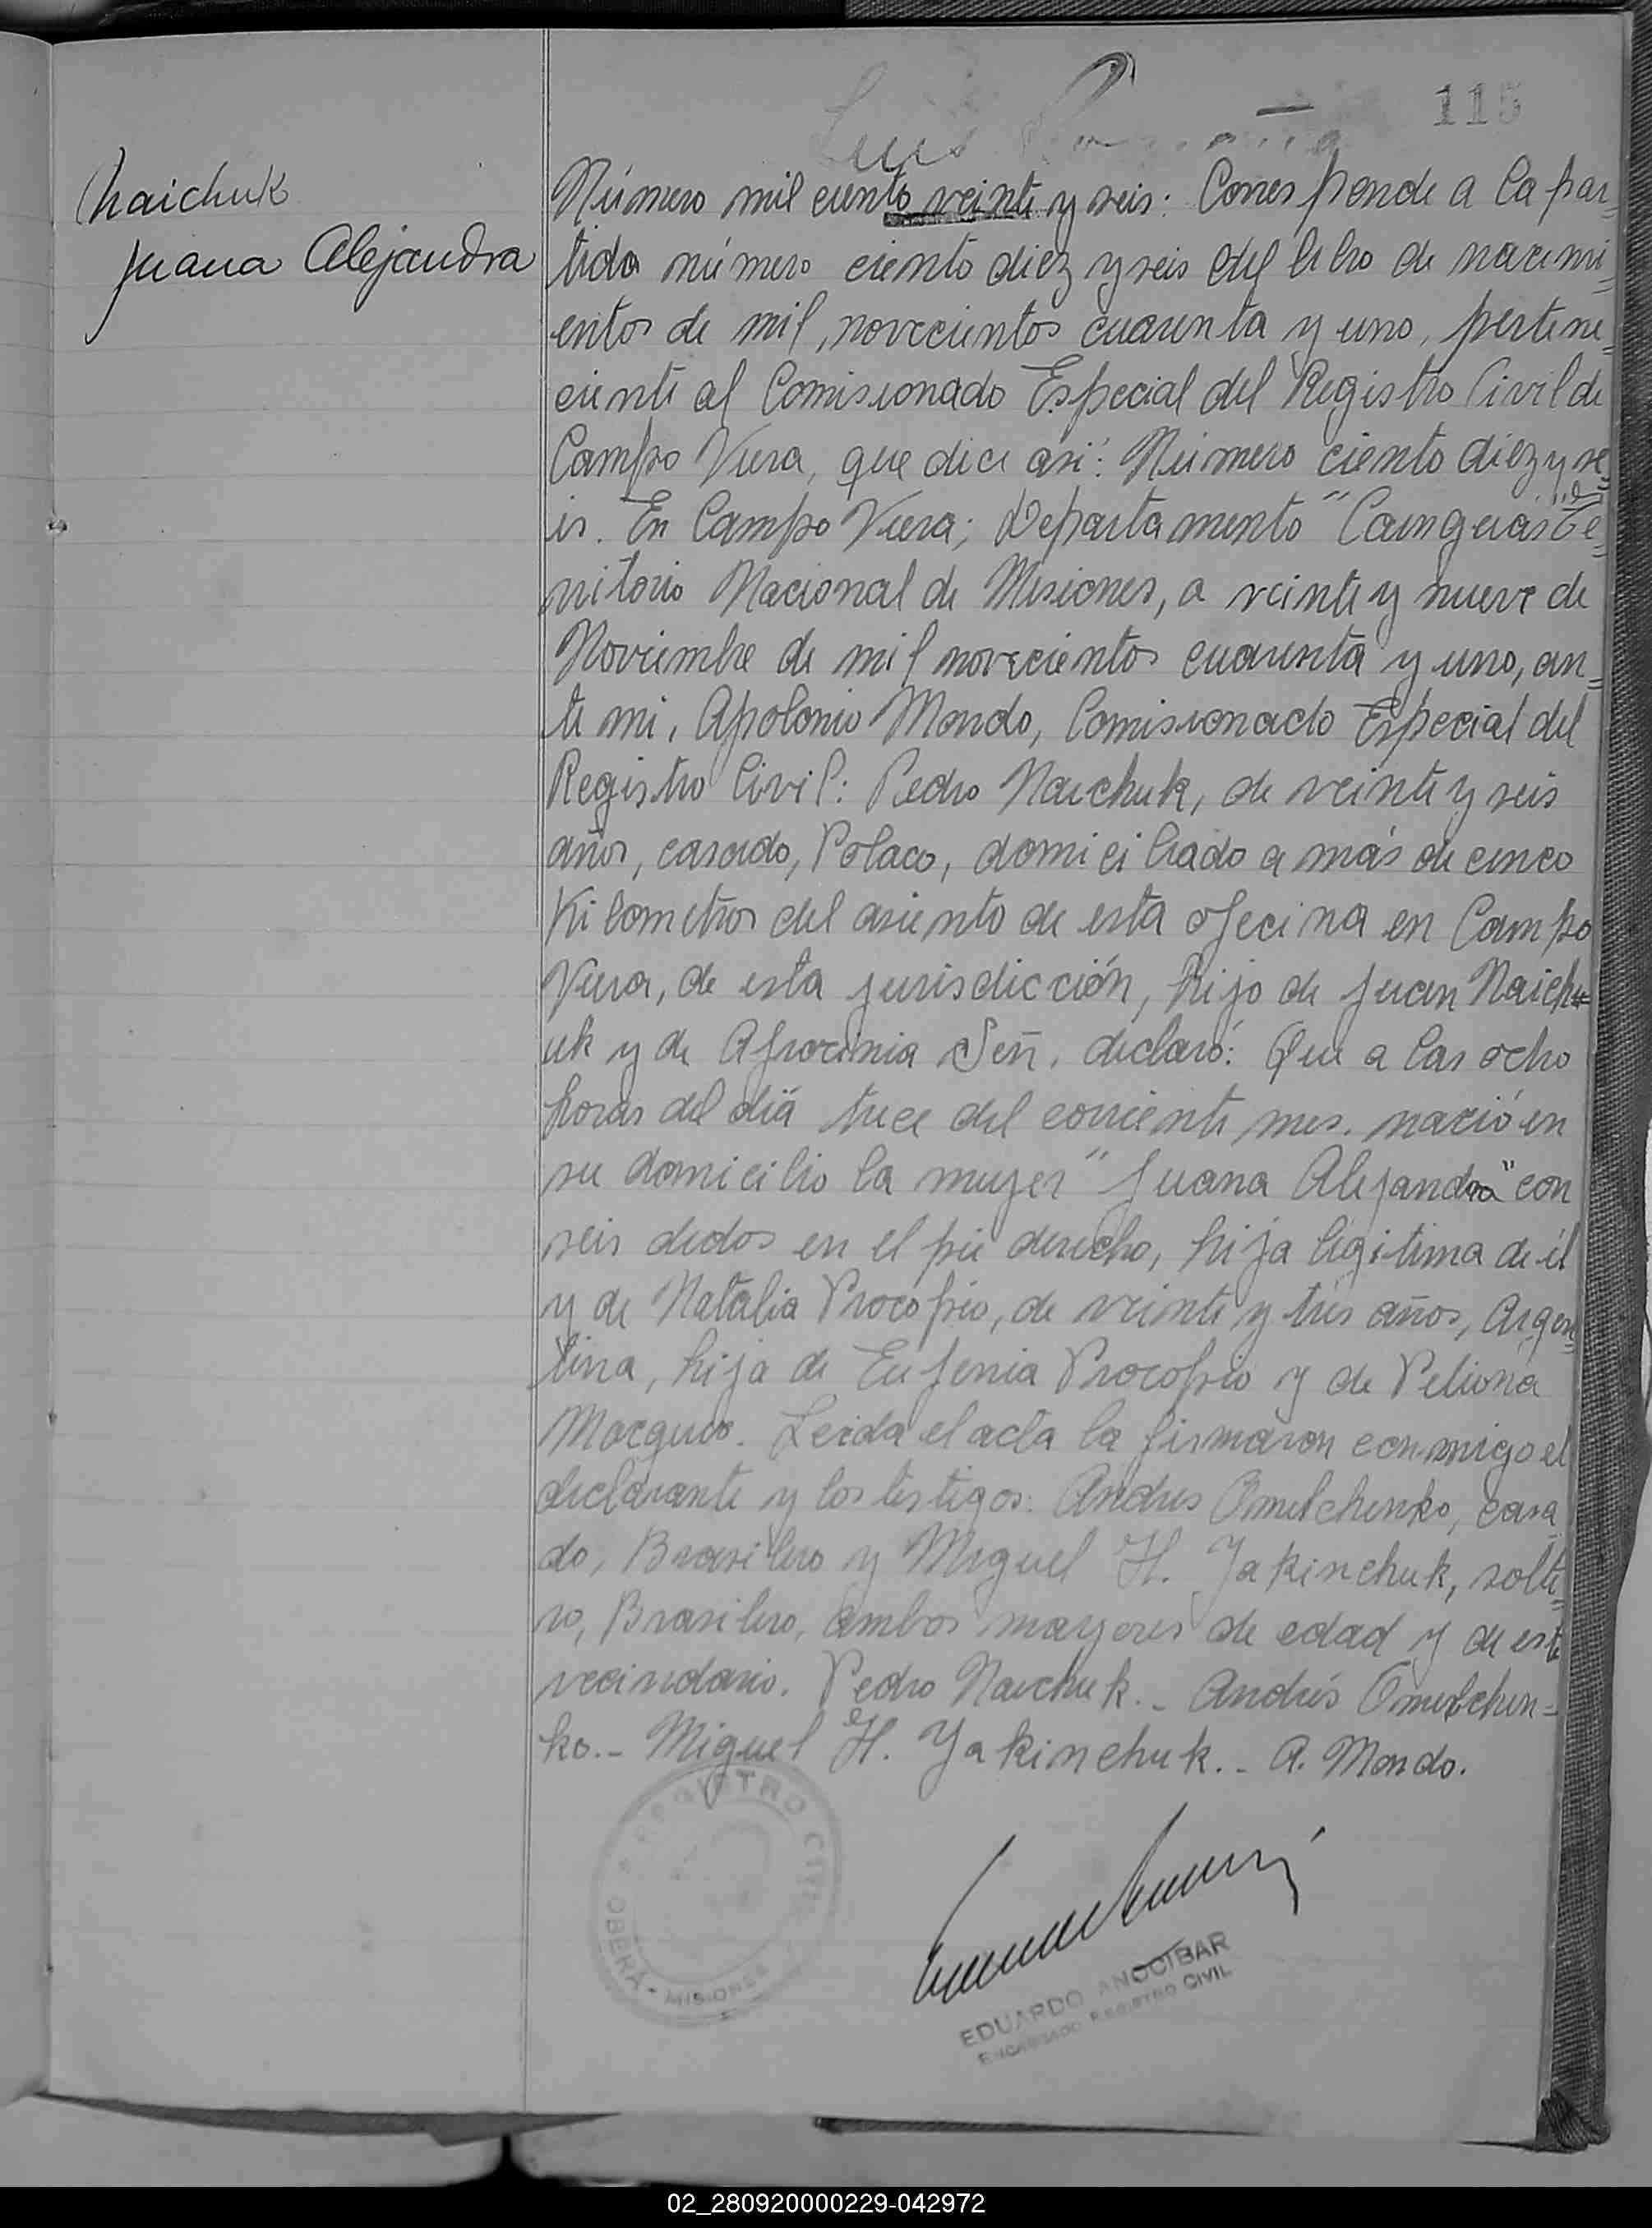 115
Naichuk
Juana Alejandra
Número mil ciento veinte y seis: Corresponde a la par-
tida número ciento diez y seis del libro de nacimi-
entos de mil, novecientos cuarenta y uno, pertene-
ciente al Comisionado Especial del Registro Civil de
Campo Viera, que dice asi: Número ciento diez y se-
is. En Campo Viera; Departamento "Cainguás" Te-
rritorio Nacional de Misiones, a veinte y nueve de
Noviembre de mil novecientos cuarenta y uno, an-
te mi, Apolonio Mondo, Comisionado Especial del
Registro Civil: Pedro Naichuk, de veinte y seis
años, casado, Polaco, domiciliado a más de cinco
Kilometros del asiento de esta oficina en Campo
Viera, de esta jurisdicción, hijo de Juan Naich-
uk y de Afrocinia Señ. declaró: Que a las ocho
horas del día trece del corriente mes. nació en
su domicilio la mujer "Juana Alejandra" con
seis dedos en el pie derecho, hija legitima de él
y de Natalia Procopio, de veinte y tres años, Argen-
tina, hija de Eufenia Procopio y de Peliona
Mocguio. Leida el acta la firmaron conmigo el
declarante y los testigos: Andres Omelchenko, casa-
do, Brasilero y Miguel H. Yakinchuk, solte-
ro, Brasilero, ambos mayores de edad y de este
vecindario. Pedro Naichuk.- Andrés Omelchen-
ko.- Miguel H. Yakinchuk.- A. Mondo.
REGISTRO CIVIL
OBERÁ - MISIONES
EDUARDO ANOCIBAR
ENCARGADO REGISTRO CIVIL
02_280920000229-042972